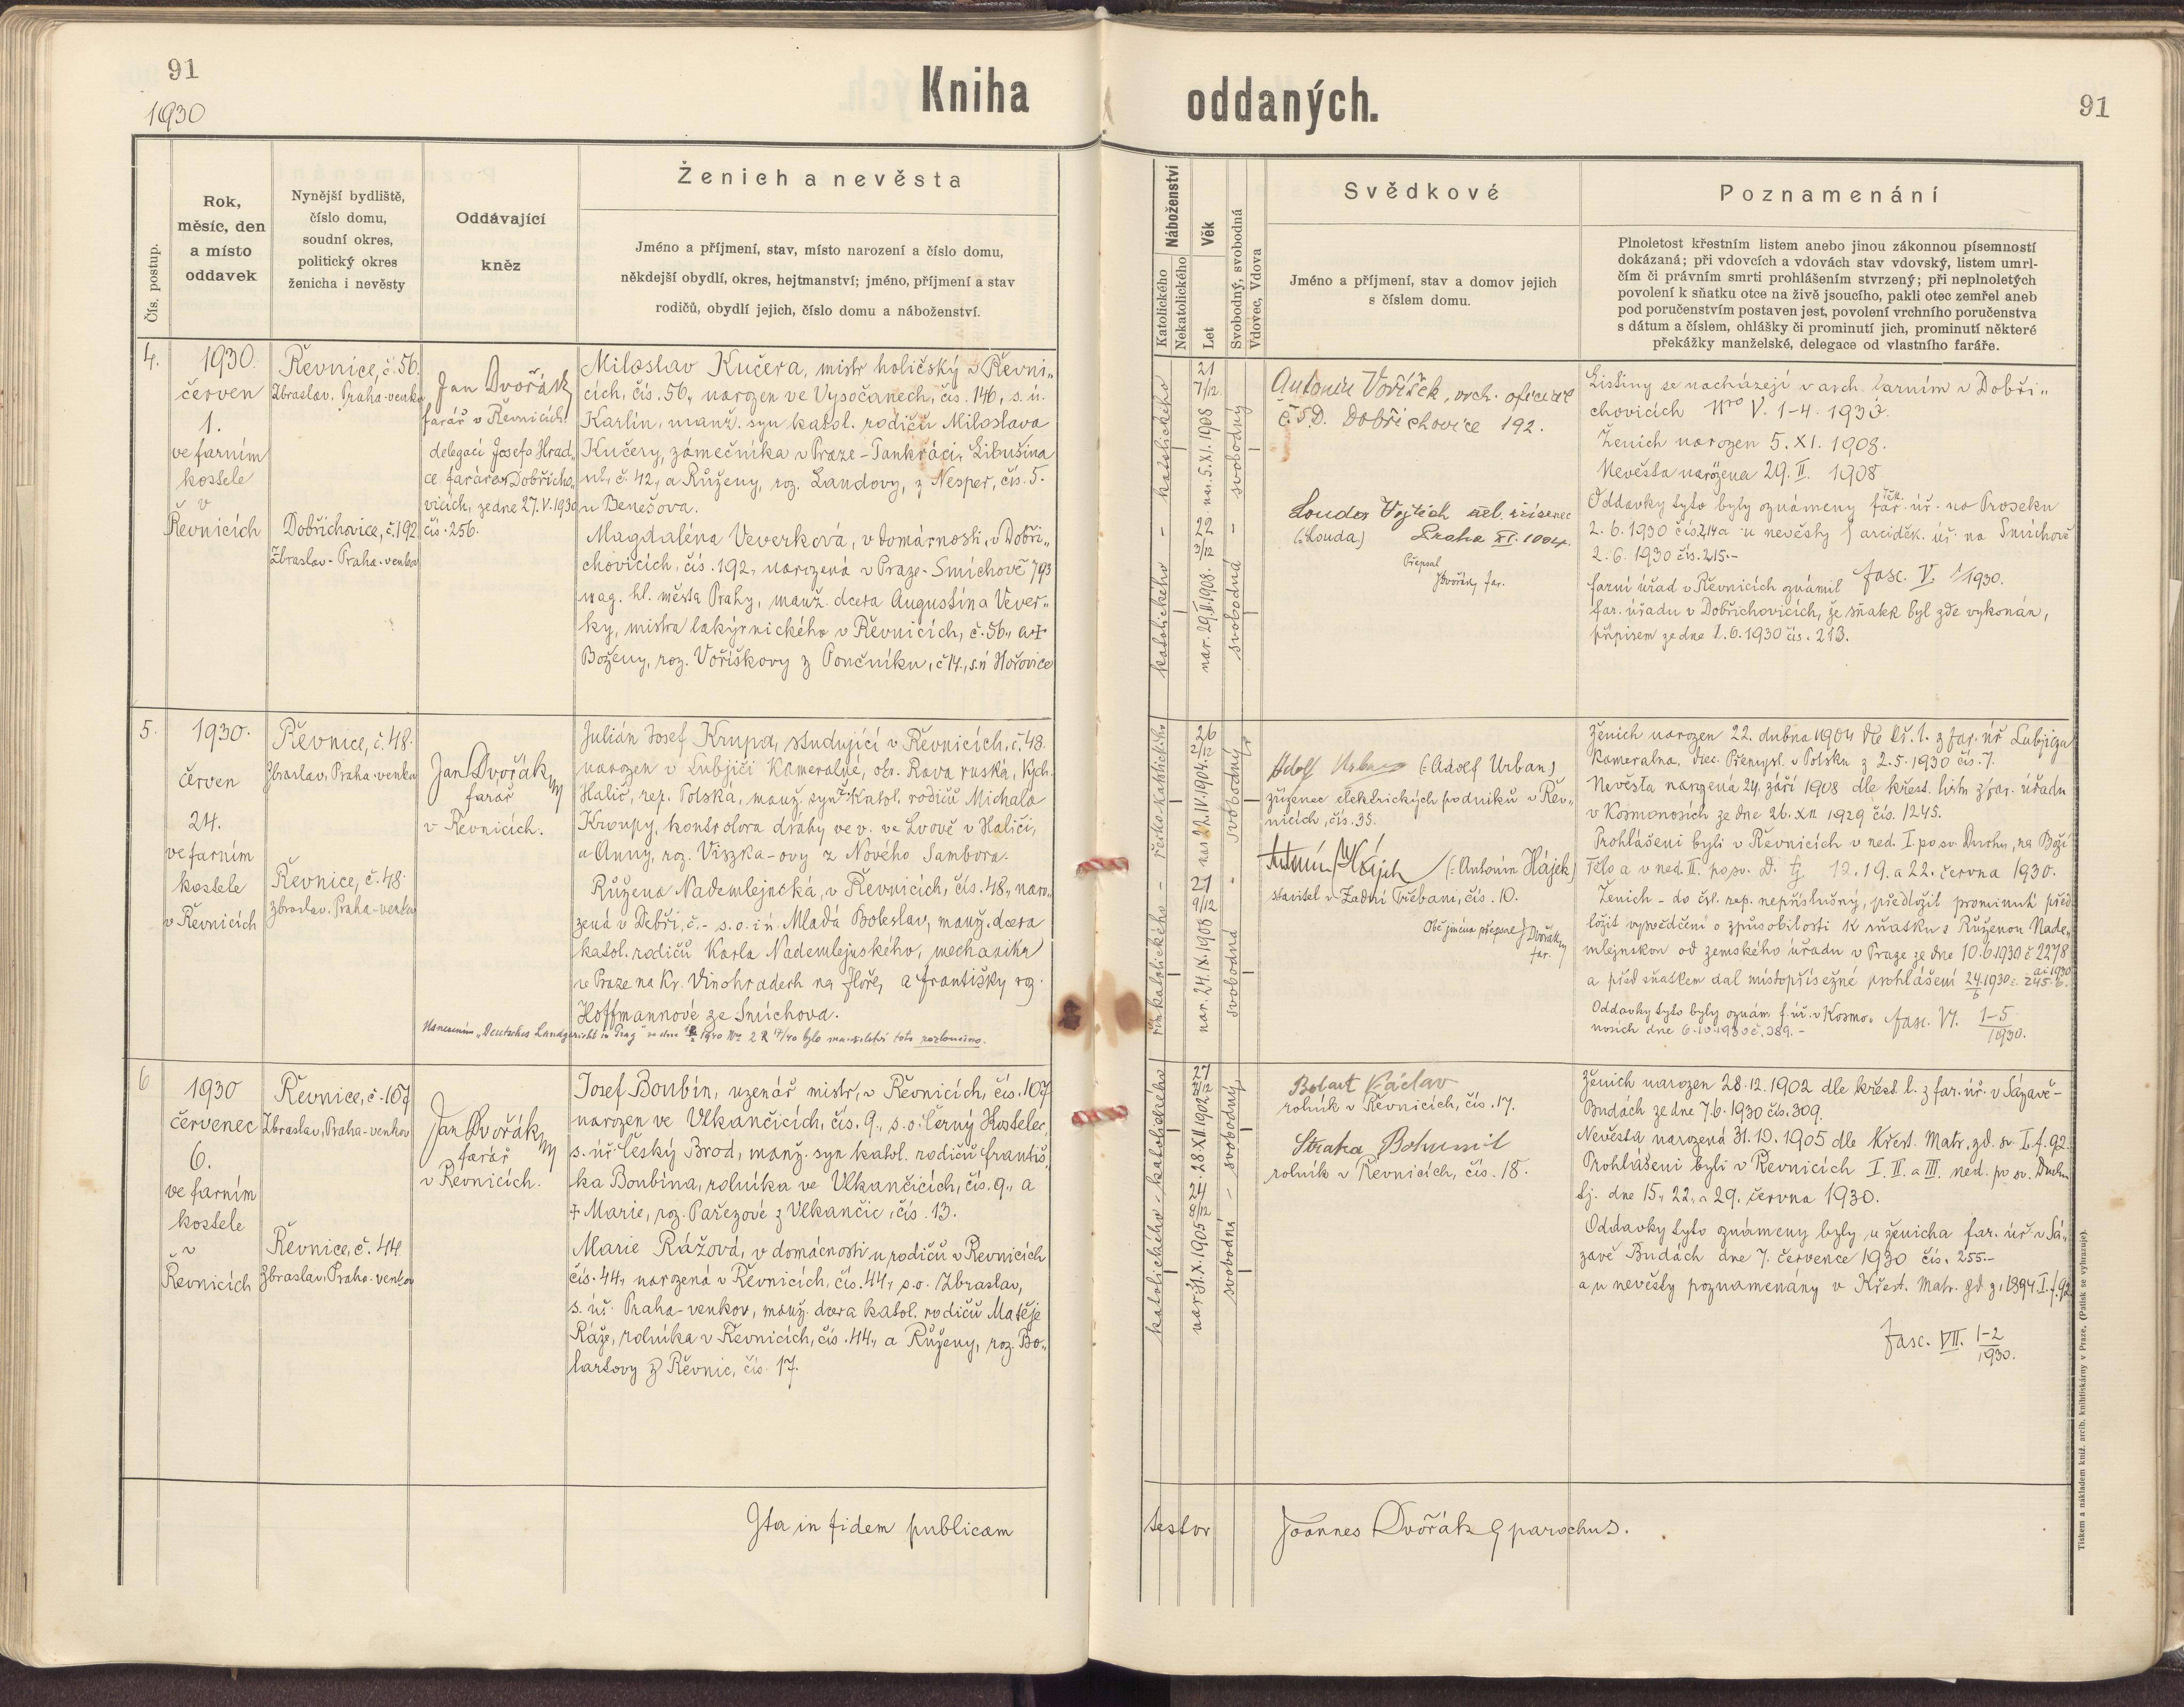 91
1930
Kniha oddaných.
91
Čís. postup.
Rok,
měsíc, den
a místo
oddavek
Nynější bydliště,
číslo domu,
soudní okres,
politický okres
ženicha i nevěsty
Oddávající
kněz
Ženich a nevěsta
Jméno a příjmení, stav, místo narození a číslo domu,
někdejší obydlí, okres, hejtmanství; jméno, příjmení a stav
rodičů, obydlí jejich, číslo domu a náboženství.
Náboženství
Katolického
Nekatolického
Věk
Let
Svobodný, svobodná
Vdovec, Vdova
Svědkové
Jméno a příjmení, stav a domov jejich
s číslem domu.
Poznamenání
Plnoletost křestním listem anebo jinou zákonnou písemností
dokázaná; při vdovcích a vdovách stav vdovský, listem umrl-
čím či právním smrti prohlášením stvrzený; při neplnoletých
povolení k sňatku otce na živě jsoucího, pakli otec zemřel aneb
pod poručenstvím postaven jest, povolení vrchního poručenstva
s dátum a číslem, ohlášky či prominutí jich, prominutí některé
překážky manželské, delegace od vlastního faráře.
4.
1930.
červen
1.
ve farním
kostele
v
Řevnicích
Řevnice, č. 56.
Zbraslav, Praha-venkov
Dobřichovice, č. 192
Zbraslav - Praha-venkov
Jan Dvořák
farář v Řevnicích
delegací Josefa Hrad-
ce faráře v Dobřicho-
vicích, ze dne 27.V.1930
čís. 256.
Miloslav Kučera, mistr holičský v Řevni-
cích, čís. 56, narozen ve Vysočanech, čís. 146, s. ú.
Karlín, manž. syn katol. rodičů Miloslava
Kučery, zámečníka v Praze-Pankráci, Libušina
ul. č. 42, a Růženy, roz. Landovy, z Nesper, čís. 5.
u Benešova.
Magdaléna Veverková, v domácnosti, v Dobři-
chovicích, čís. 192, narozená v Praze-Smíchově 793
mag. hl. města Prahy, manž. dcera Augustina Vever-
ky, mistra lakýrnického v Řevnicích, č. 56, a +
Boženy, roz. Voříškovy z Pončníku, č 14, s. ú Hořovice
katolického - katolického
21
7/12
nar. 5. XI. 1908
22
3/12
nar. 29. II. 1908.
svobodná - svobodný
Antonín Voříšek, vrch. oficiál
Č.S.D. Dobřichovice 192.
Louda Vojtěch
(:Louda) Praha XI. 1004.
Přepsal
Dvořák, far.
Listiny se nacházejí v arch. farním v Dobři-
chovicích Nro V. 1-4. 1930.
Ženich narozen 5. XI. 1908.
Nevěsta narozena 29. II. 1908
Oddavky tyto byly oznámeny far. úř. na Proseku
2. 6. 1930 čís. 214 a u nevěsty arciděk. úř. na Smíchově
2. 6. 1930 čís. 215.-
fasc. V. 1/1930.
farní úřad v Řevnicích oznámil
far. úřadu v Dobřichovicích, že sňatek byl zde vykonán,
přípisem ze dne 1. 6. 1930 čís. 213.
5.
1930.
červen
24.
ve farním
kostele
v Řevnicích
Řevnice, č. 48.
Zbraslav, Praha-venkov
Řevnice, č. 48.
Zbraslav, Praha-venkov
Jan Dvořák
farář
v Řevnicích.
Julián Josef Krupa, studující v Řevnicích, č. 48.
narozen v Lubjiči Kameralné, okr. Rava ruská, Vých.
Halič, rep. Polská, manž. syn ř. katol. rodičů Michala
Kroupy, kontrolora dráhy ve v. ve Lvově v Haliči,
a Anny, roz. Viszka-ovy z Nového Sambora.
Růžena Nademlejnská, v Řevnicích, čís. 48, naro-
zená v Debři, č. - s. o. i ú. Mladá Boleslav, manž. dcera
katol. rodičů Karla Nademlejnského, mechanika
v Praze na Kr. Vinohradech na Floře, a Františky roz.
Hoffmannové ze Smíchova.
Usnesením „Deutsches Landgericht in Prag" ze dne 1940 Nro 2 R 17/40 bylo manželství toto rozloučeno.
řím. katolického - řecko-katolického
26
2/12
nar. 22. IV. 1904.
21
9/12
nar. 24. IX. 1908
svobodná - svobodný
Adolf Urban (:Adolf Urban)
zřízenec elektrických podniků v Řev-
nicích, čís. 35.
Antonín Hájek (:Antonín Hájek)
stavitel v Zadní Třebani, čís. 10.
Obě jména přepsal Dvořák
far.
Ženich narozen 22. dubna 1904 dle kř. l. z far. úř Lubjicza
Kameralna, diec. Přemysl. v Polsku z 2. 5. 1930 čís. 7.
Nevěsta narozená 24. září 1908 dle křest. listu z far. úřadu
v Kosmonosích ze dne 26. XII 1929 čís. 1245.
Prohlášeni byli v Řevnicích v ned. I. po sv. Duchu, na Boží
Tělo a v ned. II. po sv. D. tj. 12. 19. a 22. června 1930.
Ženich - do čsl. rep. nepříslušný, předložil prominutí před-
ložit vysvědčení o způsobilosti k sňatku s Růženou Nade-
mlejnskou od zemského úřadu v Praze ze dne 10.6.1930 č 2278
a před sňatkem dal místopřísežné prohlášení 24/6 1930 č. 245.
Oddavky tyto byly oznám. f. úř. v Kosmo-
nosích dne 6. 10. 1930 č. 389. -
fasc. VI. 1-5/1930.
6
1930
červenec
6.
ve farním
kostele
v
Řevnicích
Řevnice, č. 107
Zbraslav, Praha-venkov
Řevnice, č. 44.
Zbraslav, Praha-venkov
Jan Dvořák
farář
v Řevnicích.
Josef Boubín, uzenář mistr, v Řevnicích, čís. 107
narozen ve Vlkančicích, čís. 9., s. o. Černý Kostelec,
s. úř. Český Brod, manž. syn katol. rodičů Františ-
ka Boubína, rolníka ve Vlkančicích, čís. 9., a
+ Marie, roz. Pařezové z Vlkančic, čís. 13.
Marie Rážová, v domácnosti u rodičů v Řevnicích
čís. 44, narozená v Řevnicích, čís. 44, s. o. Zbraslav,
s. úř. Praha-venkov, manž. dcera katol. rodičů Matěje
Ráže, rolníka v Řevnicích, čís. 44, a Růženy, roz. Bo-
lartovy z Řevnic, čís. 17.
katolického - katolického
27
nar. 28. XII. 1902
24
8/12
nar. 31. X. 1905
svobodná - svobodný
Bolart Václav
rolník v Řevnicích, čís. 17.
Straka Bohumil
rolník v Řevnicích, čís. 18.
Ženich narozen 28. 12. 1902 dle křest. l. z far. úř. v Sázavě-
Budách ze dne 7.6. 1930 čís. 309.
Nevěsta narozená 31. 10. 1905 dle Křest. Matr. zd. sv. I. f. 92.
Prohlášeni byli v Řevnicích I. II. a III. ned. po sv. Duchu
tj. dne 15., 22., a 29. června 1930.
Oddavky tyto oznámeny byly u ženicha far. úř. v Sá-
zavě Budách dne 7. července 1930 čís. 255.-
a u nevěsty poznamenány v Křest. Matr. zd z. 1894. I. f. 92
fasc. VII. 1-2/1930.
Ita in fidem publicam testor Joannes Dvořák parochus.
Tiskem a nákladem kníž. arcib. knihtiskárny v Praze. (Patisk se vyhrazuje).